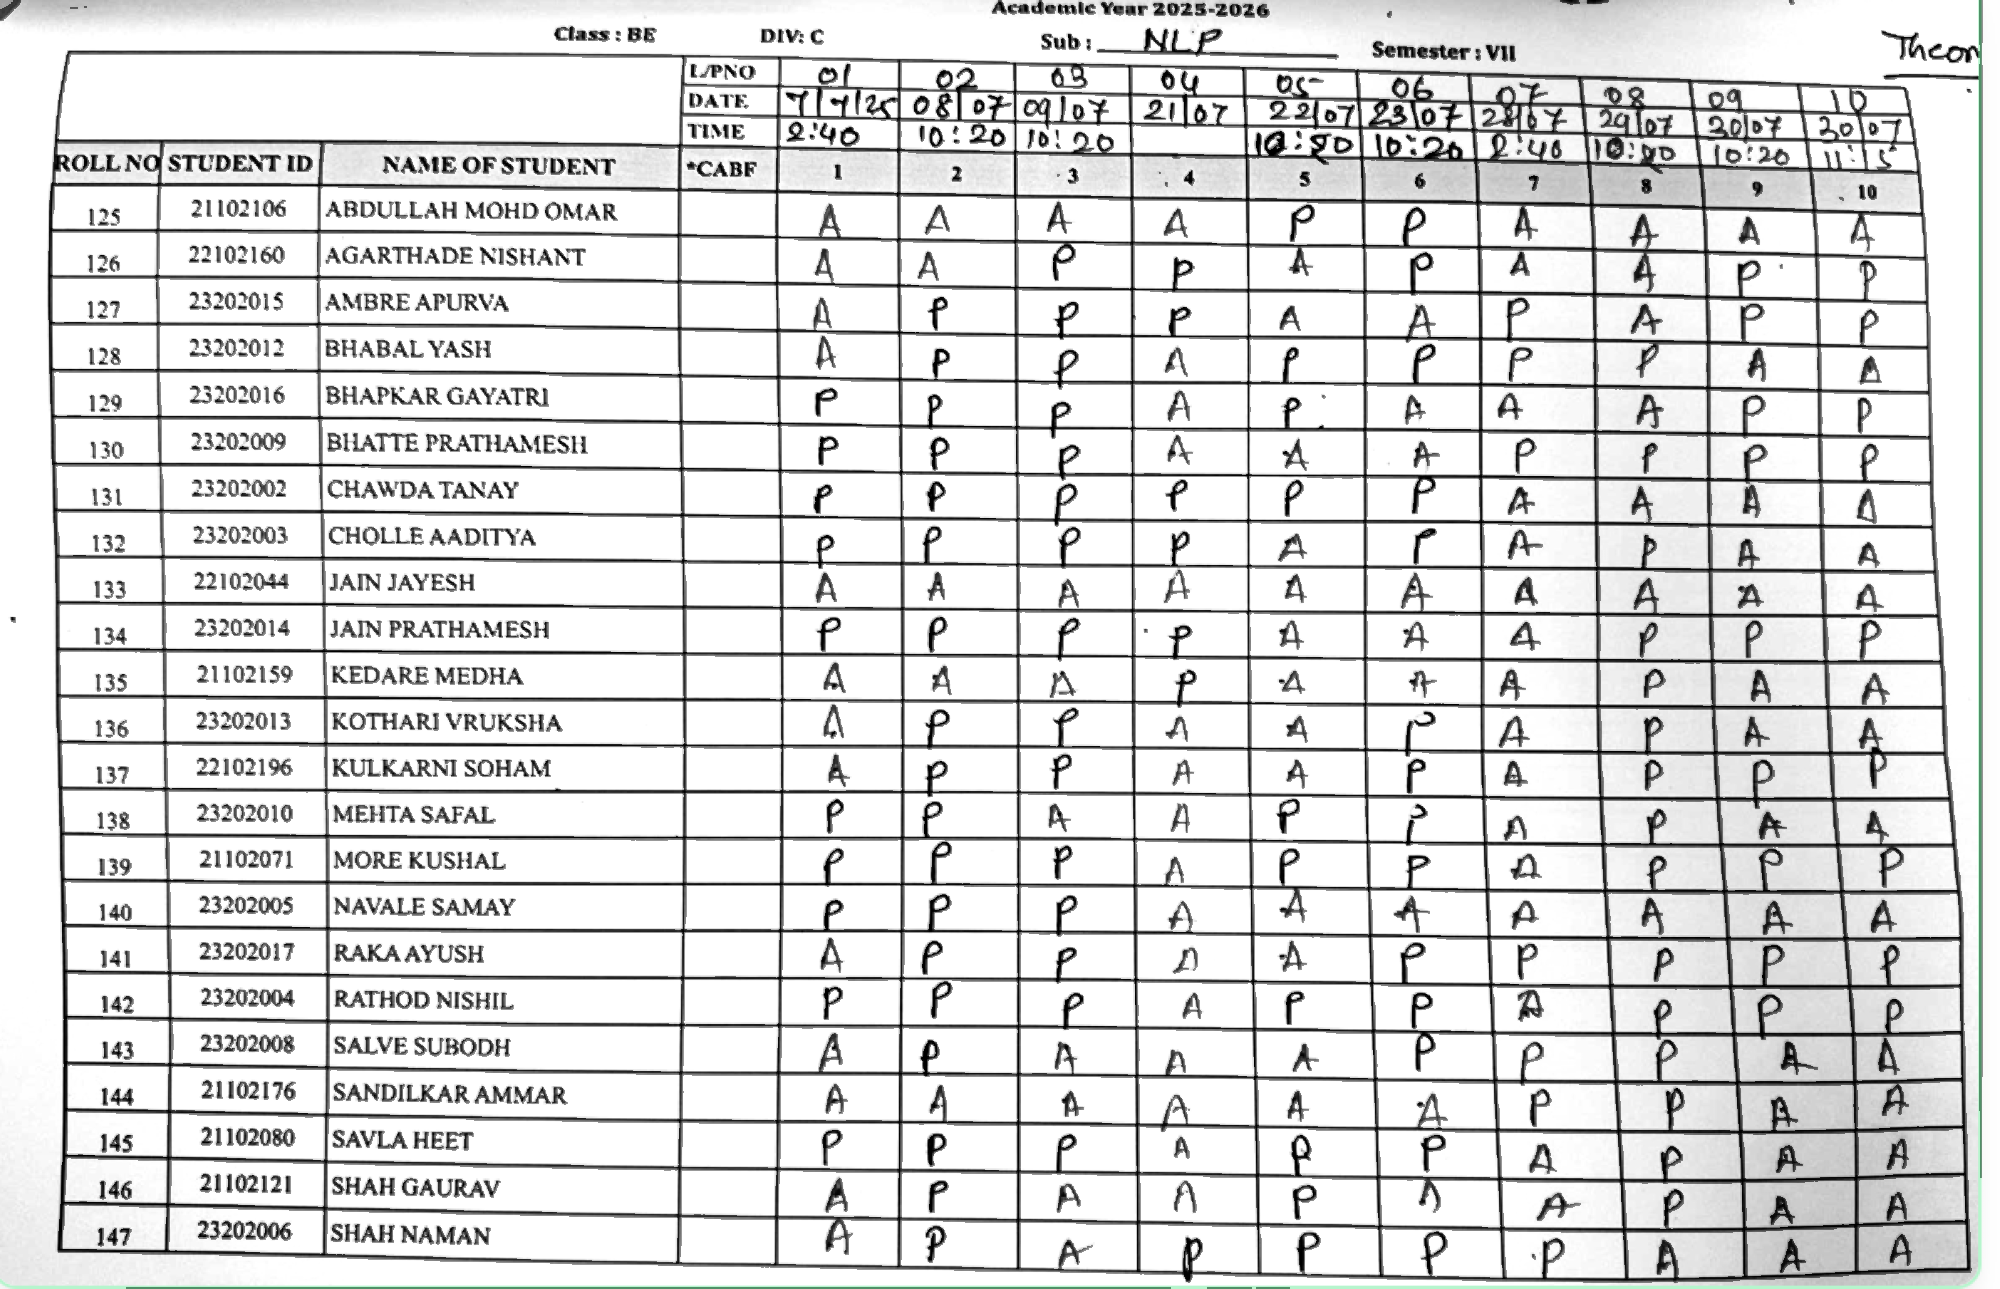 Academic Year 2025-2026
Class : BE DIV: C Sub : NLP Semester : VII Theor
L/PNO 01 02 03 04 05 06 07 08 09 10
DATE 7/7/25 08/07 09/07 21/07 22/07 23/07 28/07 29/07 30/07 30/07
TIME 2:40 10:20 10:20 10:20 10:20 2:40 10:20 10:20 11:15
ROLL NO STUDENT ID NAME OF STUDENT *CABF 1 2 3 4 5 6 7 8 9 10
125 21102106 ABDULLAH MOHD OMAR A A A A P P A A A A
126 22102160 AGARTHADE NISHANT A A P P A P A A P P
127 23202015 AMBRE APURVA A P P P A A P A P P
128 23202012 BHABAL YASH A P P A P P P P A A
129 23202016 BHAPKAR GAYATRI P P P A P A A A P P
130 23202009 BHATTE PRATHAMESH P P P A A A P P P P
131 23202002 CHAWDA TANAY P P P P P P A A A A
132 23202003 CHOLLE AADITYA P P P P A P A P A A
133 22102044 JAIN JAYESH A A A A A A A A A A
134 23202014 JAIN PRATHAMESH P P P P A A A P P P
135 21102159 KEDARE MEDHA A A A P A A A P A A
136 23202013 KOTHARI VRUKSHA A P P A A P A P A A
137 22102196 KULKARNI SOHAM A P P A A P A P P P
138 23202010 MEHTA SAFAL P P A A P P A P A A
139 21102071 MORE KUSHAL P P P A P P A P P P
140 23202005 NAVALE SAMAY P P P A A A A A A A
141 23202017 RAKA AYUSH A P P A A P P P P P
142 23202004 RATHOD NISHIL P P P A P P A P P P
143 23202008 SALVE SUBODH A P A A A P P P A A
144 21102176 SANDILKAR AMMAR A A A A A A P P A A
145 21102080 SAVLA HEET P P P A P P A P A A
146 21102121 SHAH GAURAV A P A A P A A P A A
147 23202006 SHAH NAMAN A P A P P P P A A A